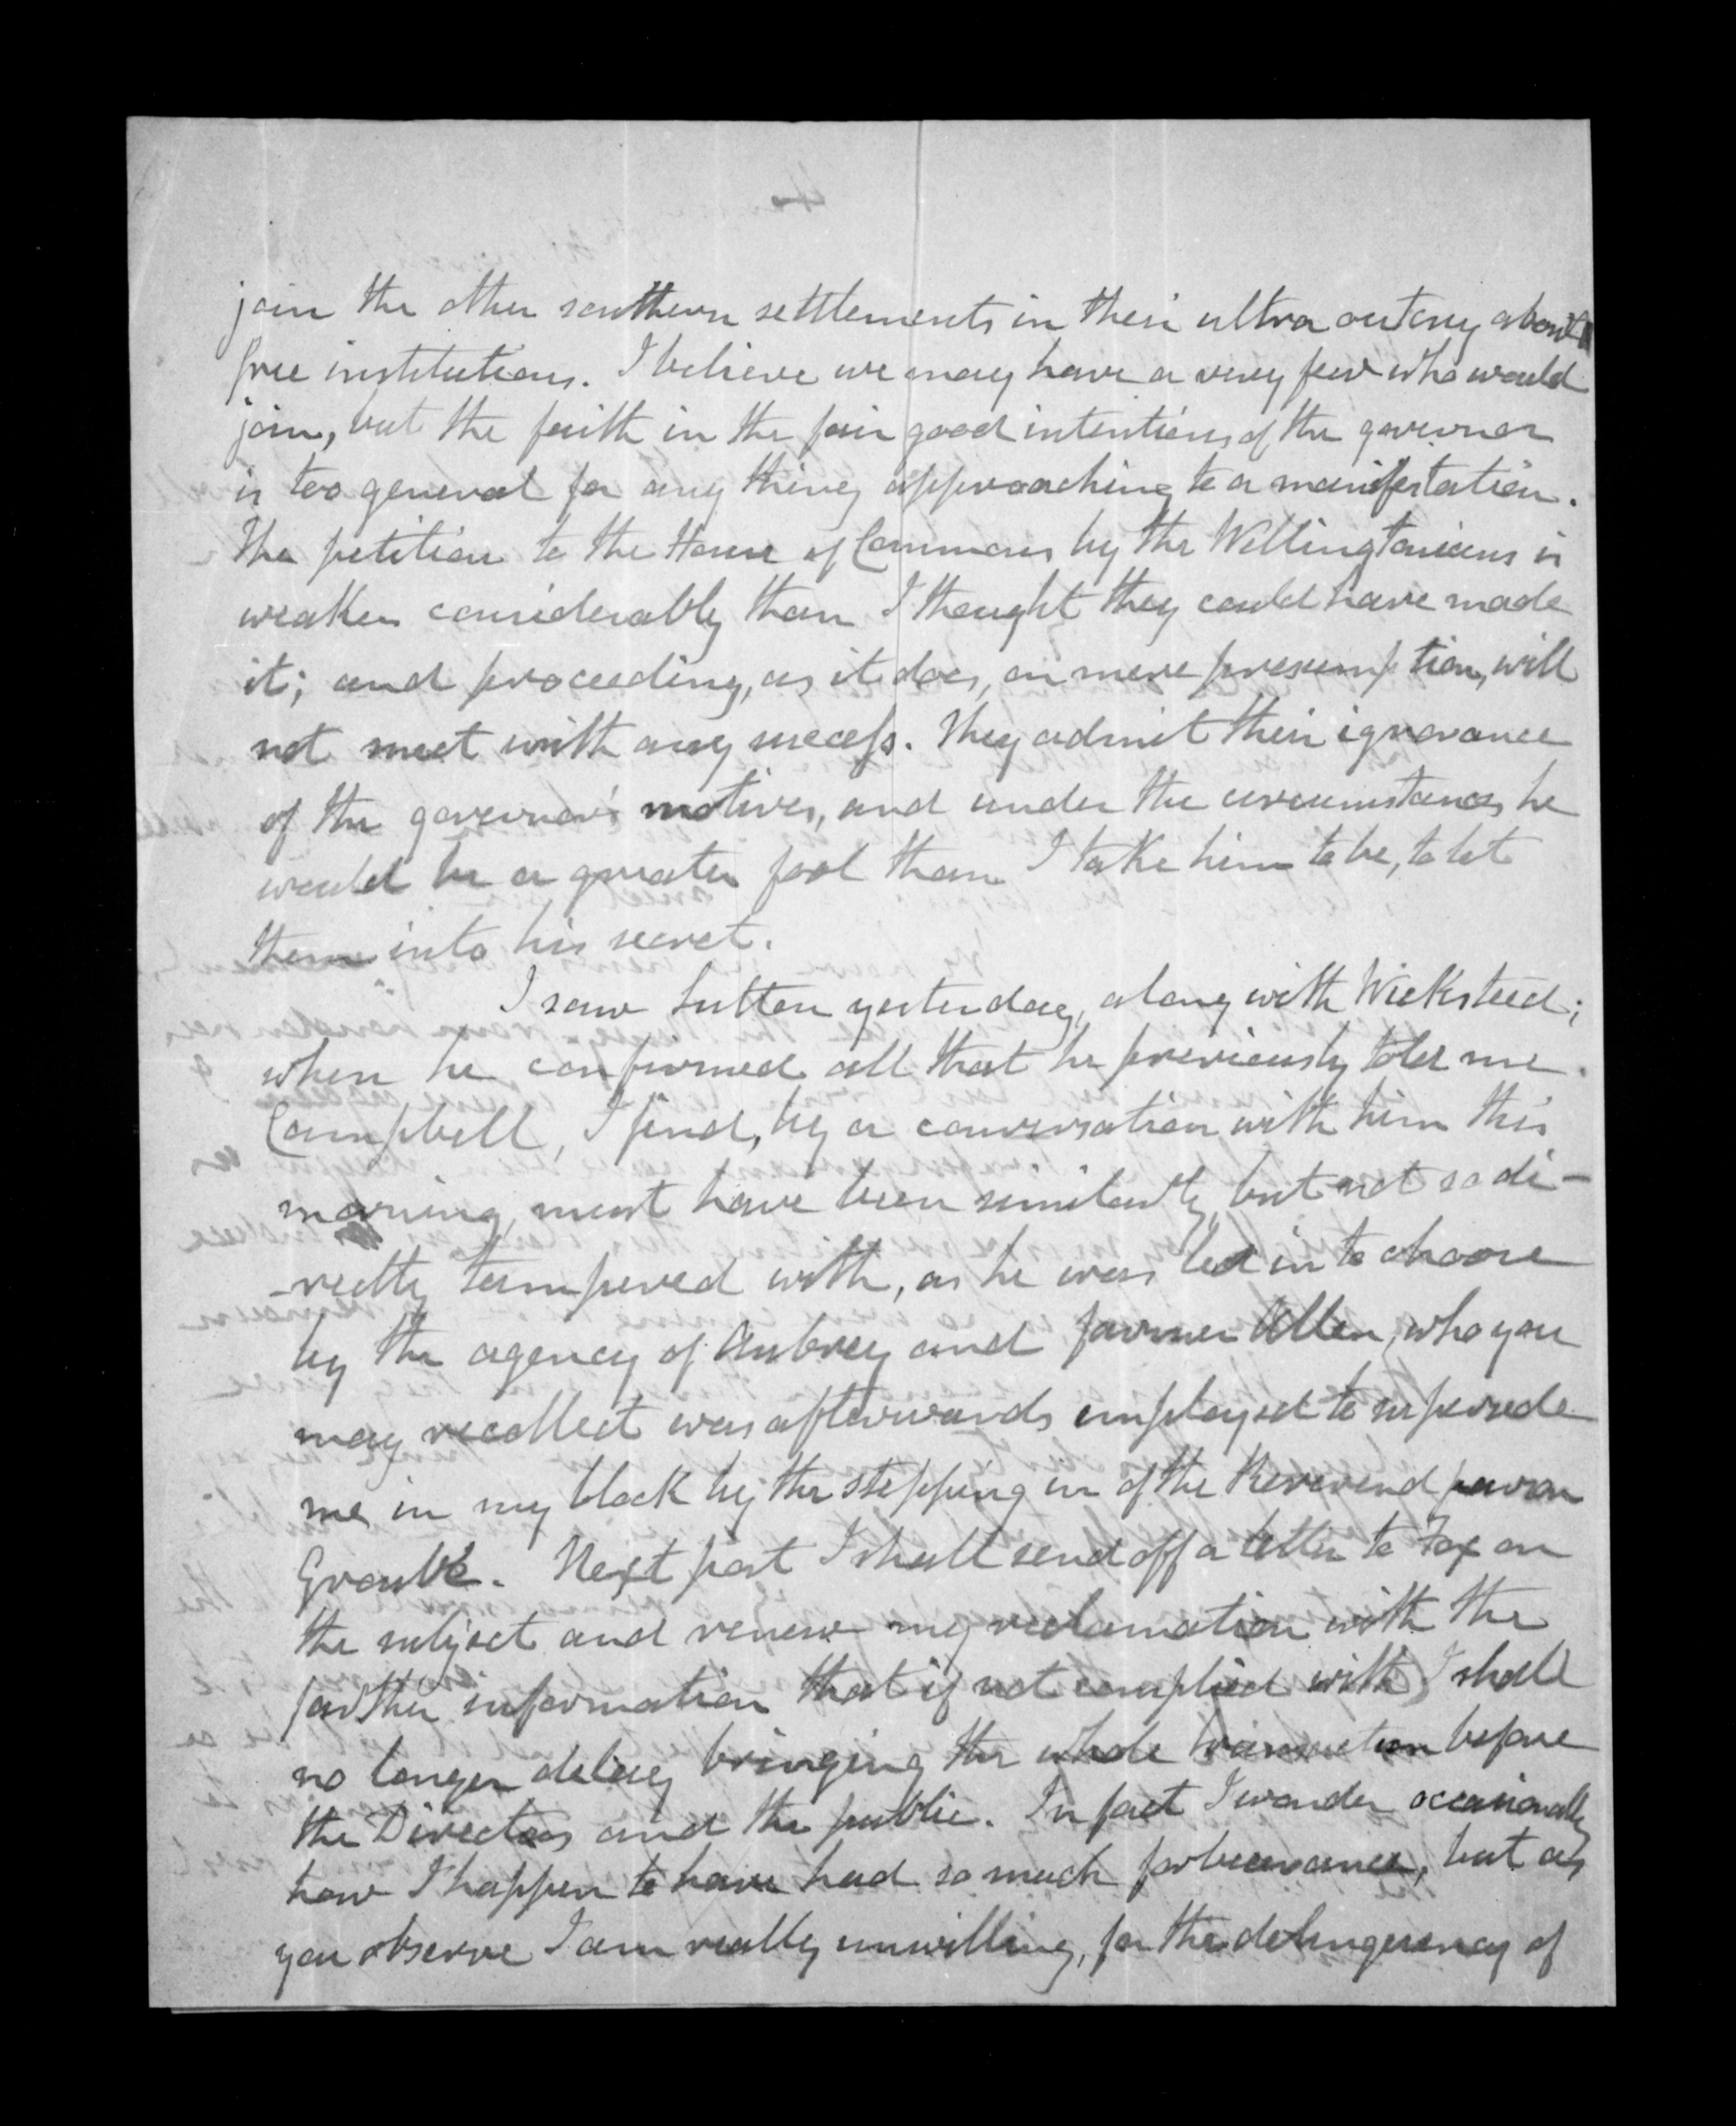 join the other southern settlements in their ultra outcry about
free institutions. I believe we may have a very few who would
join, but the faith in the fair good intentions of the governor
is too general for any thing approaching to a manifestation.
The petition to the House of Commons by the Wellingtonians is
weaker considerably than I thought they could have made
it; and proceeding, as it does, on mere presumption, will
not meet with any success. They admit their ignorance
of the governor's motives, and under the circumstances he
would be a greater fool than I take him to be, to let
them into his secret.
I saw Sutton yesterday, along with Wicksteed;
when he confirmed all that he previously told me.
Campbell, I find, by a conversation with him this
morning, must have been similarly, but not so di-
-rectly tampered with, as he was led in to choose
by the agency of Aubrey and farmer Allen, who you
may recollect was afterwards employed to supersede
me in my block by the stepping in of the Reverend parson
Next post I shall send off a letter to Fox on
the subject and renew my reclamation with the
farther information that if not complied with I shall
no longer delay bringing the whole transaction before
the Directors and the public. In fact I wonder occasionally
how I happen to have had so much forbearance, but as
you observe I am really unwilling, for the delinquency of